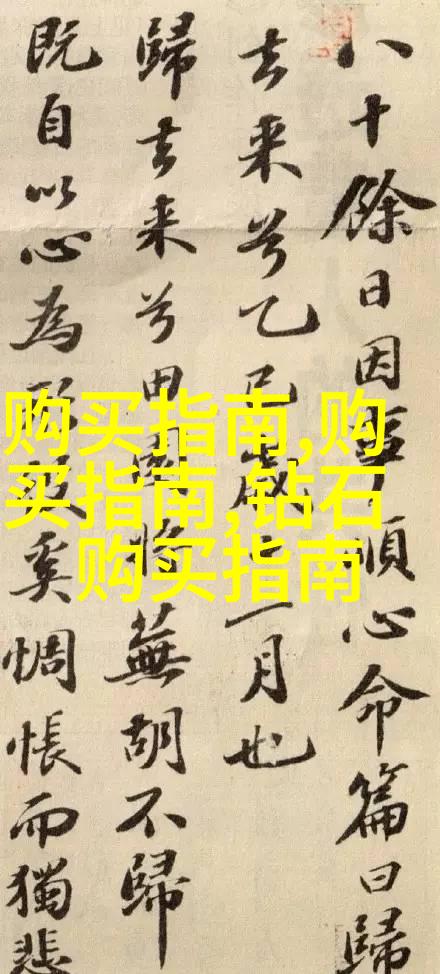 八十餘日因事順心命篇曰歸
去来兮乙巳歲十一月也
歸去来兮田園将蕪胡不歸
既自以心為形役奚惆悵而獨悲
购买指南,购
买指南,钻石
购买指南